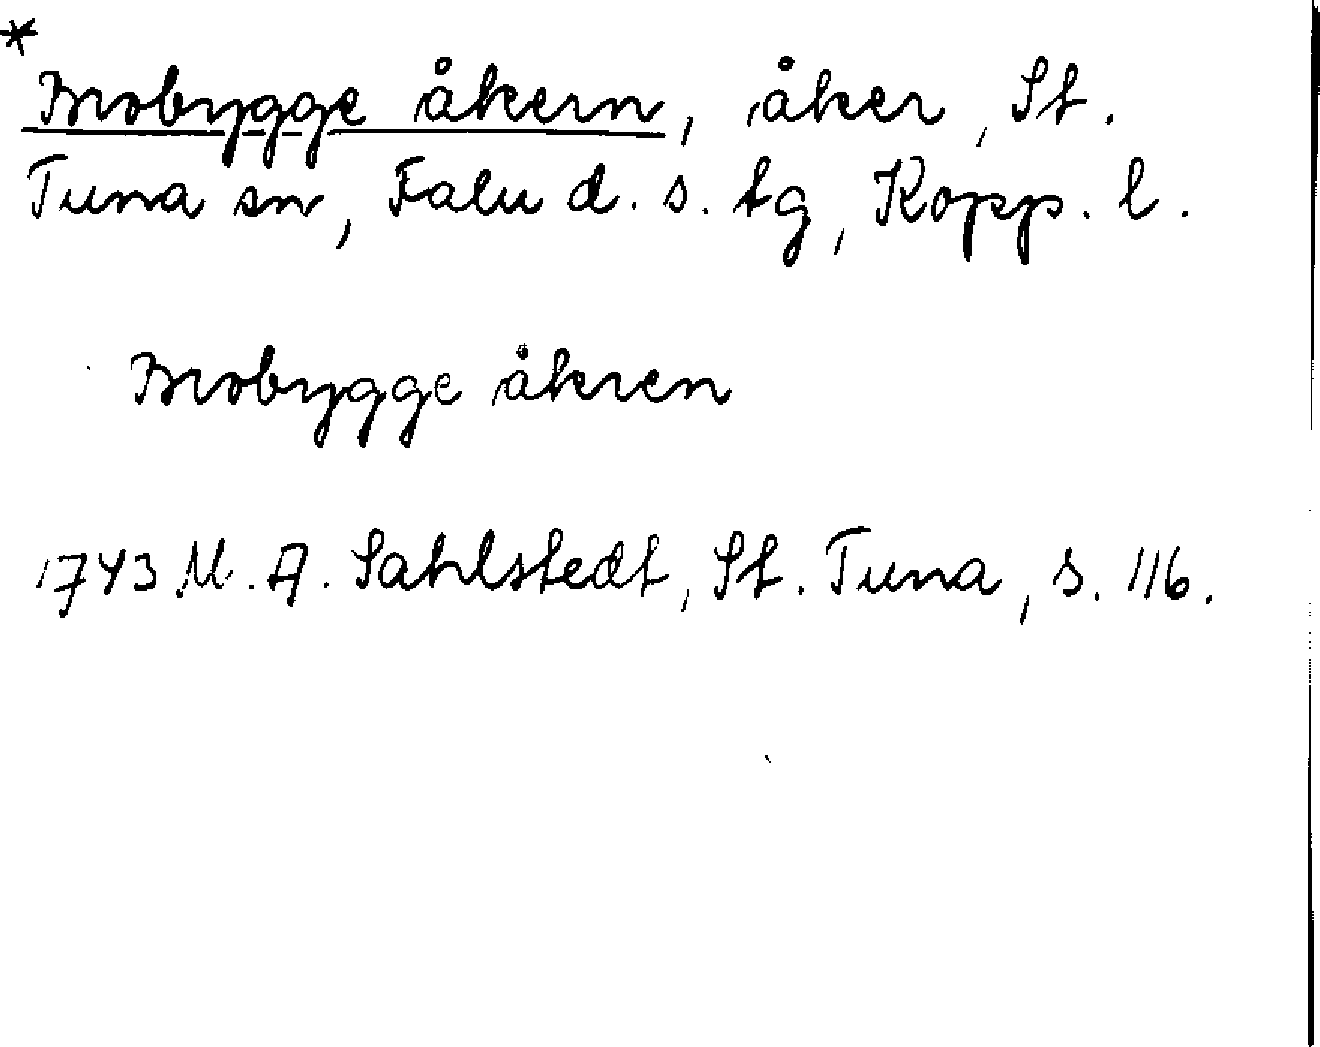 *
Brobygge åkern, åker, St.
Tuna sn, Falu d. s. tg, Kopp. l.
Brobygge åkren
1743 M. A. Sahlstedt, St. Tuna, s. 116.